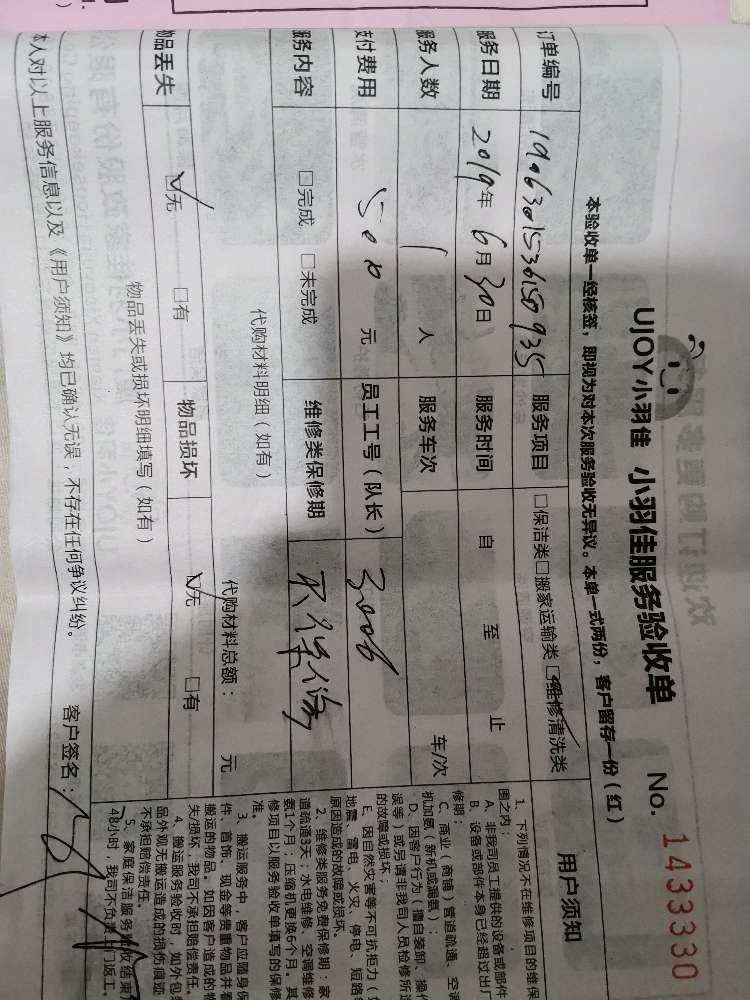 UJOY小羽佳 小羽佳服务验收单 No. 1433330
本验收单一经核签，即视为对本次服务验收无异议。本单一式两份，客户留存一份（红）
订单编号 1906301536150935 服务项目 □保洁类□搬家运输类□维修清洗类
服务日期 2019年 6月 30日 服务时间 自 至 止
服务人数 1 人 服务车次 车/次
支付费用 500 元 员工工号（队长） 3006
服务内容 □完成 □未完成 维修类保修期 不保修
代购材料明细（如有） 代购材料总额： 元
物品丢失 ☑无 □有 物品损坏 ☑无 □有
物品丢失或损坏明细填写（如有）
本人对以上服务信息以及《用户须知》均已确认无误，不存在任何争议纠纷。 客户签名：
用户须知
1、下列情况不在维修项目的维保
围之内：
A、非我司员工提供的设备或部件
B、设备或部件本身已经超过出厂
修期；
C、商业（商铺）管道疏通、空调
机加氨，新机或漏氨）；
D、因客户行为（擅自装卸、操作
误等）或另请非我司人员检修所造
的故障或损坏；
E、因自然灾害等不可抗拒力（
地震、雷电、火灾、停电、短路
原因造成的故障或损坏。
2、维修类服务免费保修期：家
道疏通3天；水电维修、空调维修
氨1个月；压缩机更换6个月。其
修项目以服务验收单填写的保修
准。
3、搬运服务中，客户应随身保
件、首饰、现金等贵重物品并看
搬运的物品。如因客户造成的物
失/损坏，我司不承担赔偿责任。
4、搬运服务验收时，如外包
品外观无搬运造成的损伤痕迹
不承担赔偿责任。
5、家庭保洁服务验收结束
48小时，我司不负责上门返工。